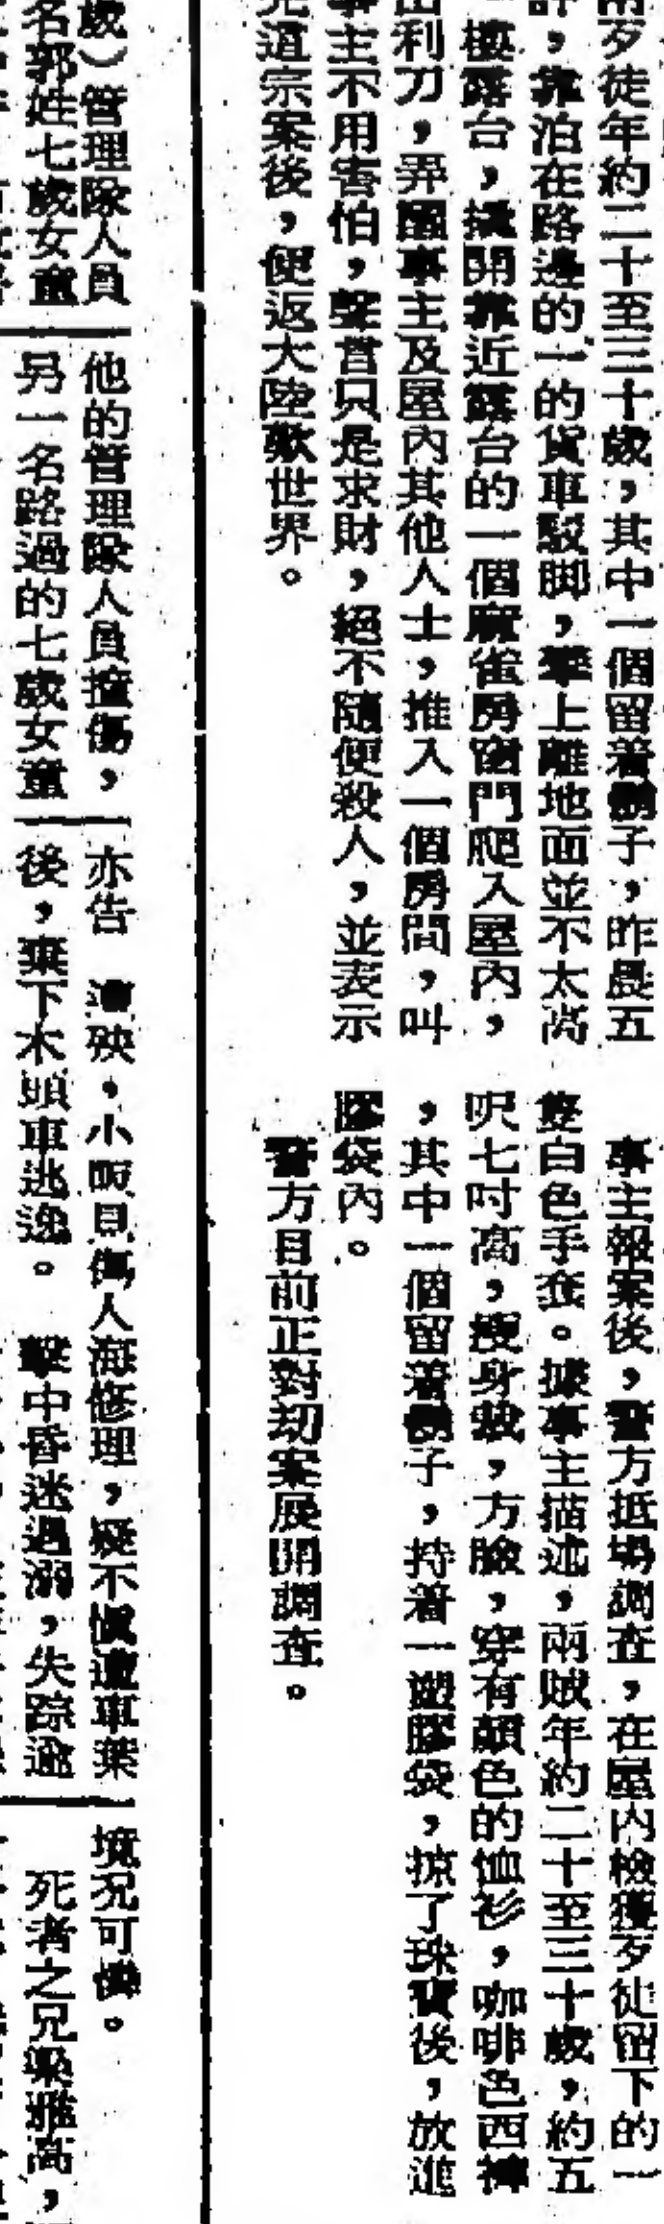 兩歹徒年約二十至三十歲，其中一個留着鬍子，昨晨五
許，靠泊在路邊的一的貨車駁脚，攀上離地面並不太高
一樓露台，撬開靠近露台的一個麻雀房窗門爬入屋內，
出利刀，弄醒事主及屋內其他人士，推入一個房間，叫
事主不用害怕，聲言只是求財，絕不隨便殺人，並表示
完道宗案後，便返大陸歎世界。
事主報案後，警方抵場調查，在屋內檢獲歹徒留下的一
隻白色手套。據事主描述，兩賊年約二十至三十歲，約五
呎七吋高，瘦身裁，方臉，穿有顏色的恤衫，咖啡色西褲
，其中一個留着鬍子，持着一塑膠袋，掠了珠寶後，放進
膠袋內。
警方目前正對劫案展開調查。
歲）管理隊人員
名郭姓七歲女童
他的管理隊人員撞傷，
另一名路過的七歲女童
亦告 遭殃，小販見傷人
後，棄下木頭車逃逸。
海修理，疑不慎遭車葉
擊中昏迷遇溺，失踪逾
境況可憐。
死者之兄梁雅高，